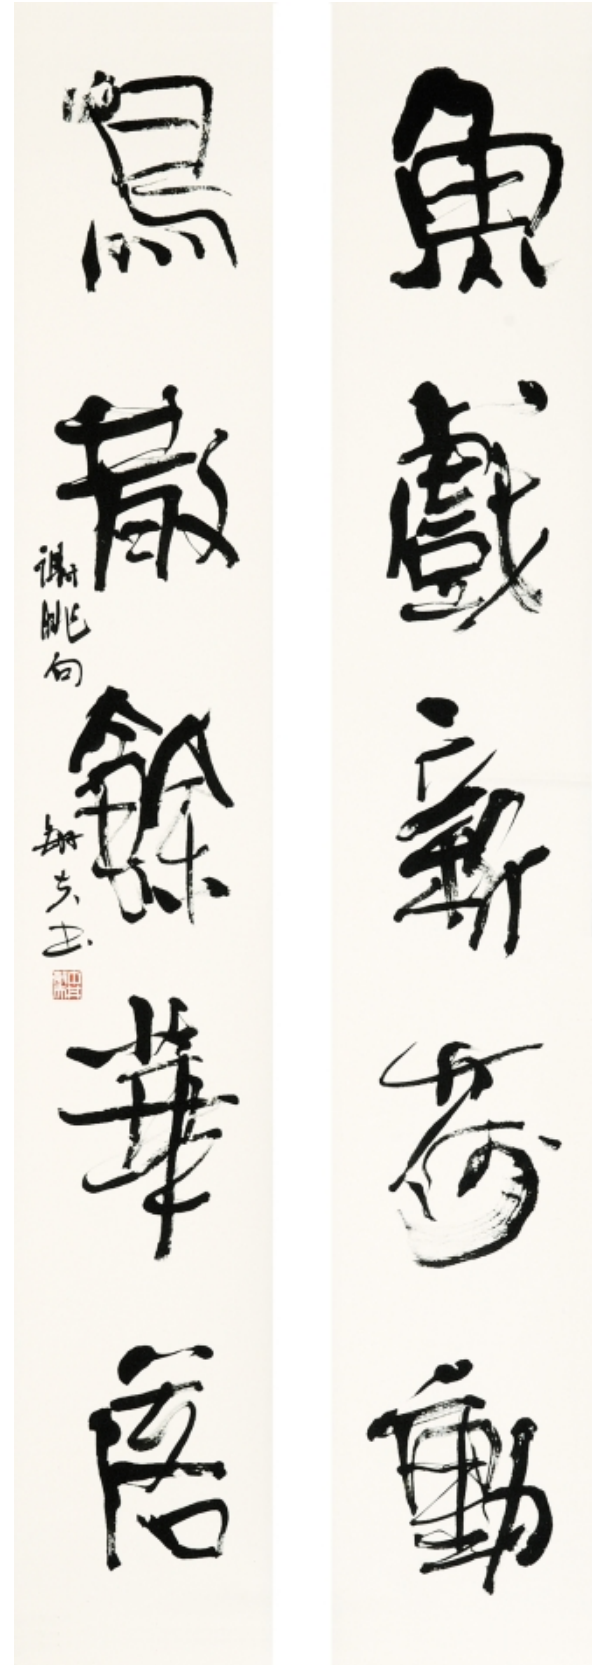 魚戲新荷動
鳥散餘華落
谢朓句